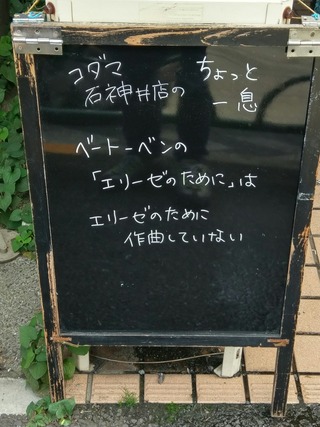 コダマ
石神井店の
ちょっと
一息
ベートーベンの
「エリーゼのために」は
エリーゼのために
作曲していない